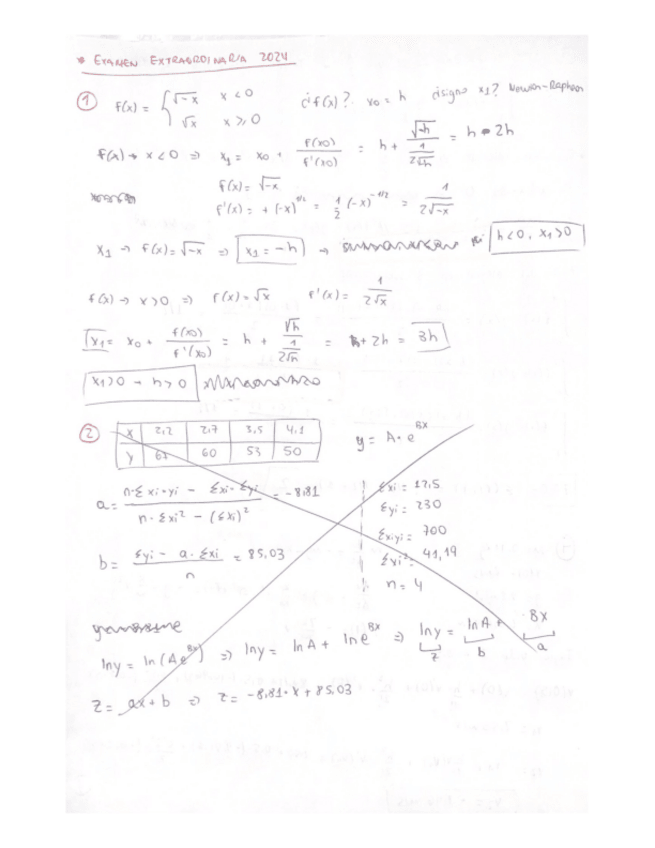 * EXAMEN EXTRAORDINARIA 2024
① f(x) = { √-x x < 0 ¿f(x)? x₀ = h ¿signo x₁? Newton-Raphson
√x x ⩾ 0
f(x) → x < 0 ⇒ x₁ = x₀ + f(x₀)/f'(x₀) = h + √-h / (1/2√-h) = h - 2h
f(x) = √-x
f'(x) = + (-x)^1/2 = 1/2 (-x)^-1/2 = 1/2√-x
x₁ → f(x) = √-x ⇒ x₁ = -h → h < 0, x₁ > 0
f(x) → x > 0 ⇒ f(x) = √x f'(x) = 1/2√x
x₁ = x₀ + f(x₀)/f'(x₀) = h + √h / (1/2√h) = h + 2h = 3h
x₁ > 0 → h > 0
② x 2,2 2,7 3,5 4,1 y = A · e^Bx
y 67 60 53 50
a = n·Σxi·yi - Σxi·Σyi / n·Σxi² - (Σxi)² = -8,81
Σxi = 12,5
Σyi = 230
Σxiyi = 700
Σxi² = 41,19
n = 4
b = Σyi - a·Σxi / n = 85,03
ln y = ln(Ae^Bx) ⇒ ln y = ln A + ln e^Bx ⇒ ln y = ln A + Bx
z b a
z = ax + b ⇒ z = -8,81·x + 85,03